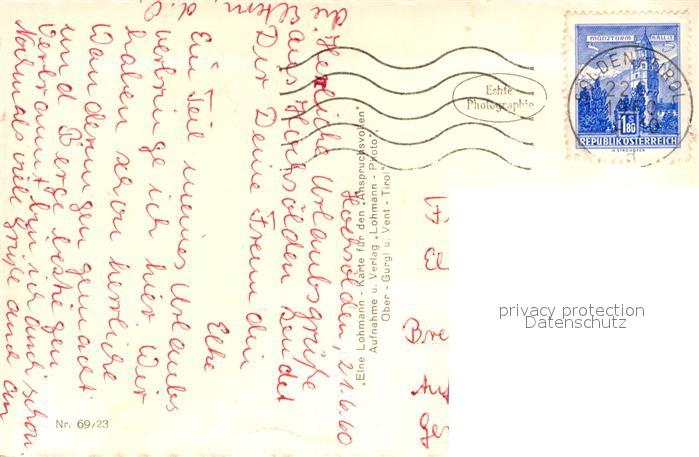 Hochsölden, 21.6.60
Herzliche Urlaubsgrüße
aus Hochsölden sendet
Dir Deine Freundin
Elke
Ein Teil meines Urlaubs
verbringe ich hier. Wir
haben schon herrliche
Wanderungen gemacht
und Berge bestiegen
verbrannt bin ich auch schon.
Nochmals viele Grüße auch an
die Eltern, d. O.
Nr. 69/23
"Eine Lohmann - Karte für den Anspruchsvollen"
Aufnahme u. Verlag "Lohmann - Photo",
Ober - Gurgl u. Vent - Tirol
Echte
Photographie
MÜNZTURM HALL I. T.
S 1.80
REPUBLIK ÖSTERREICH
SÖLDEN TIROL
22.
1960
El
Bre
Ge
privacy protection
Datenschutz